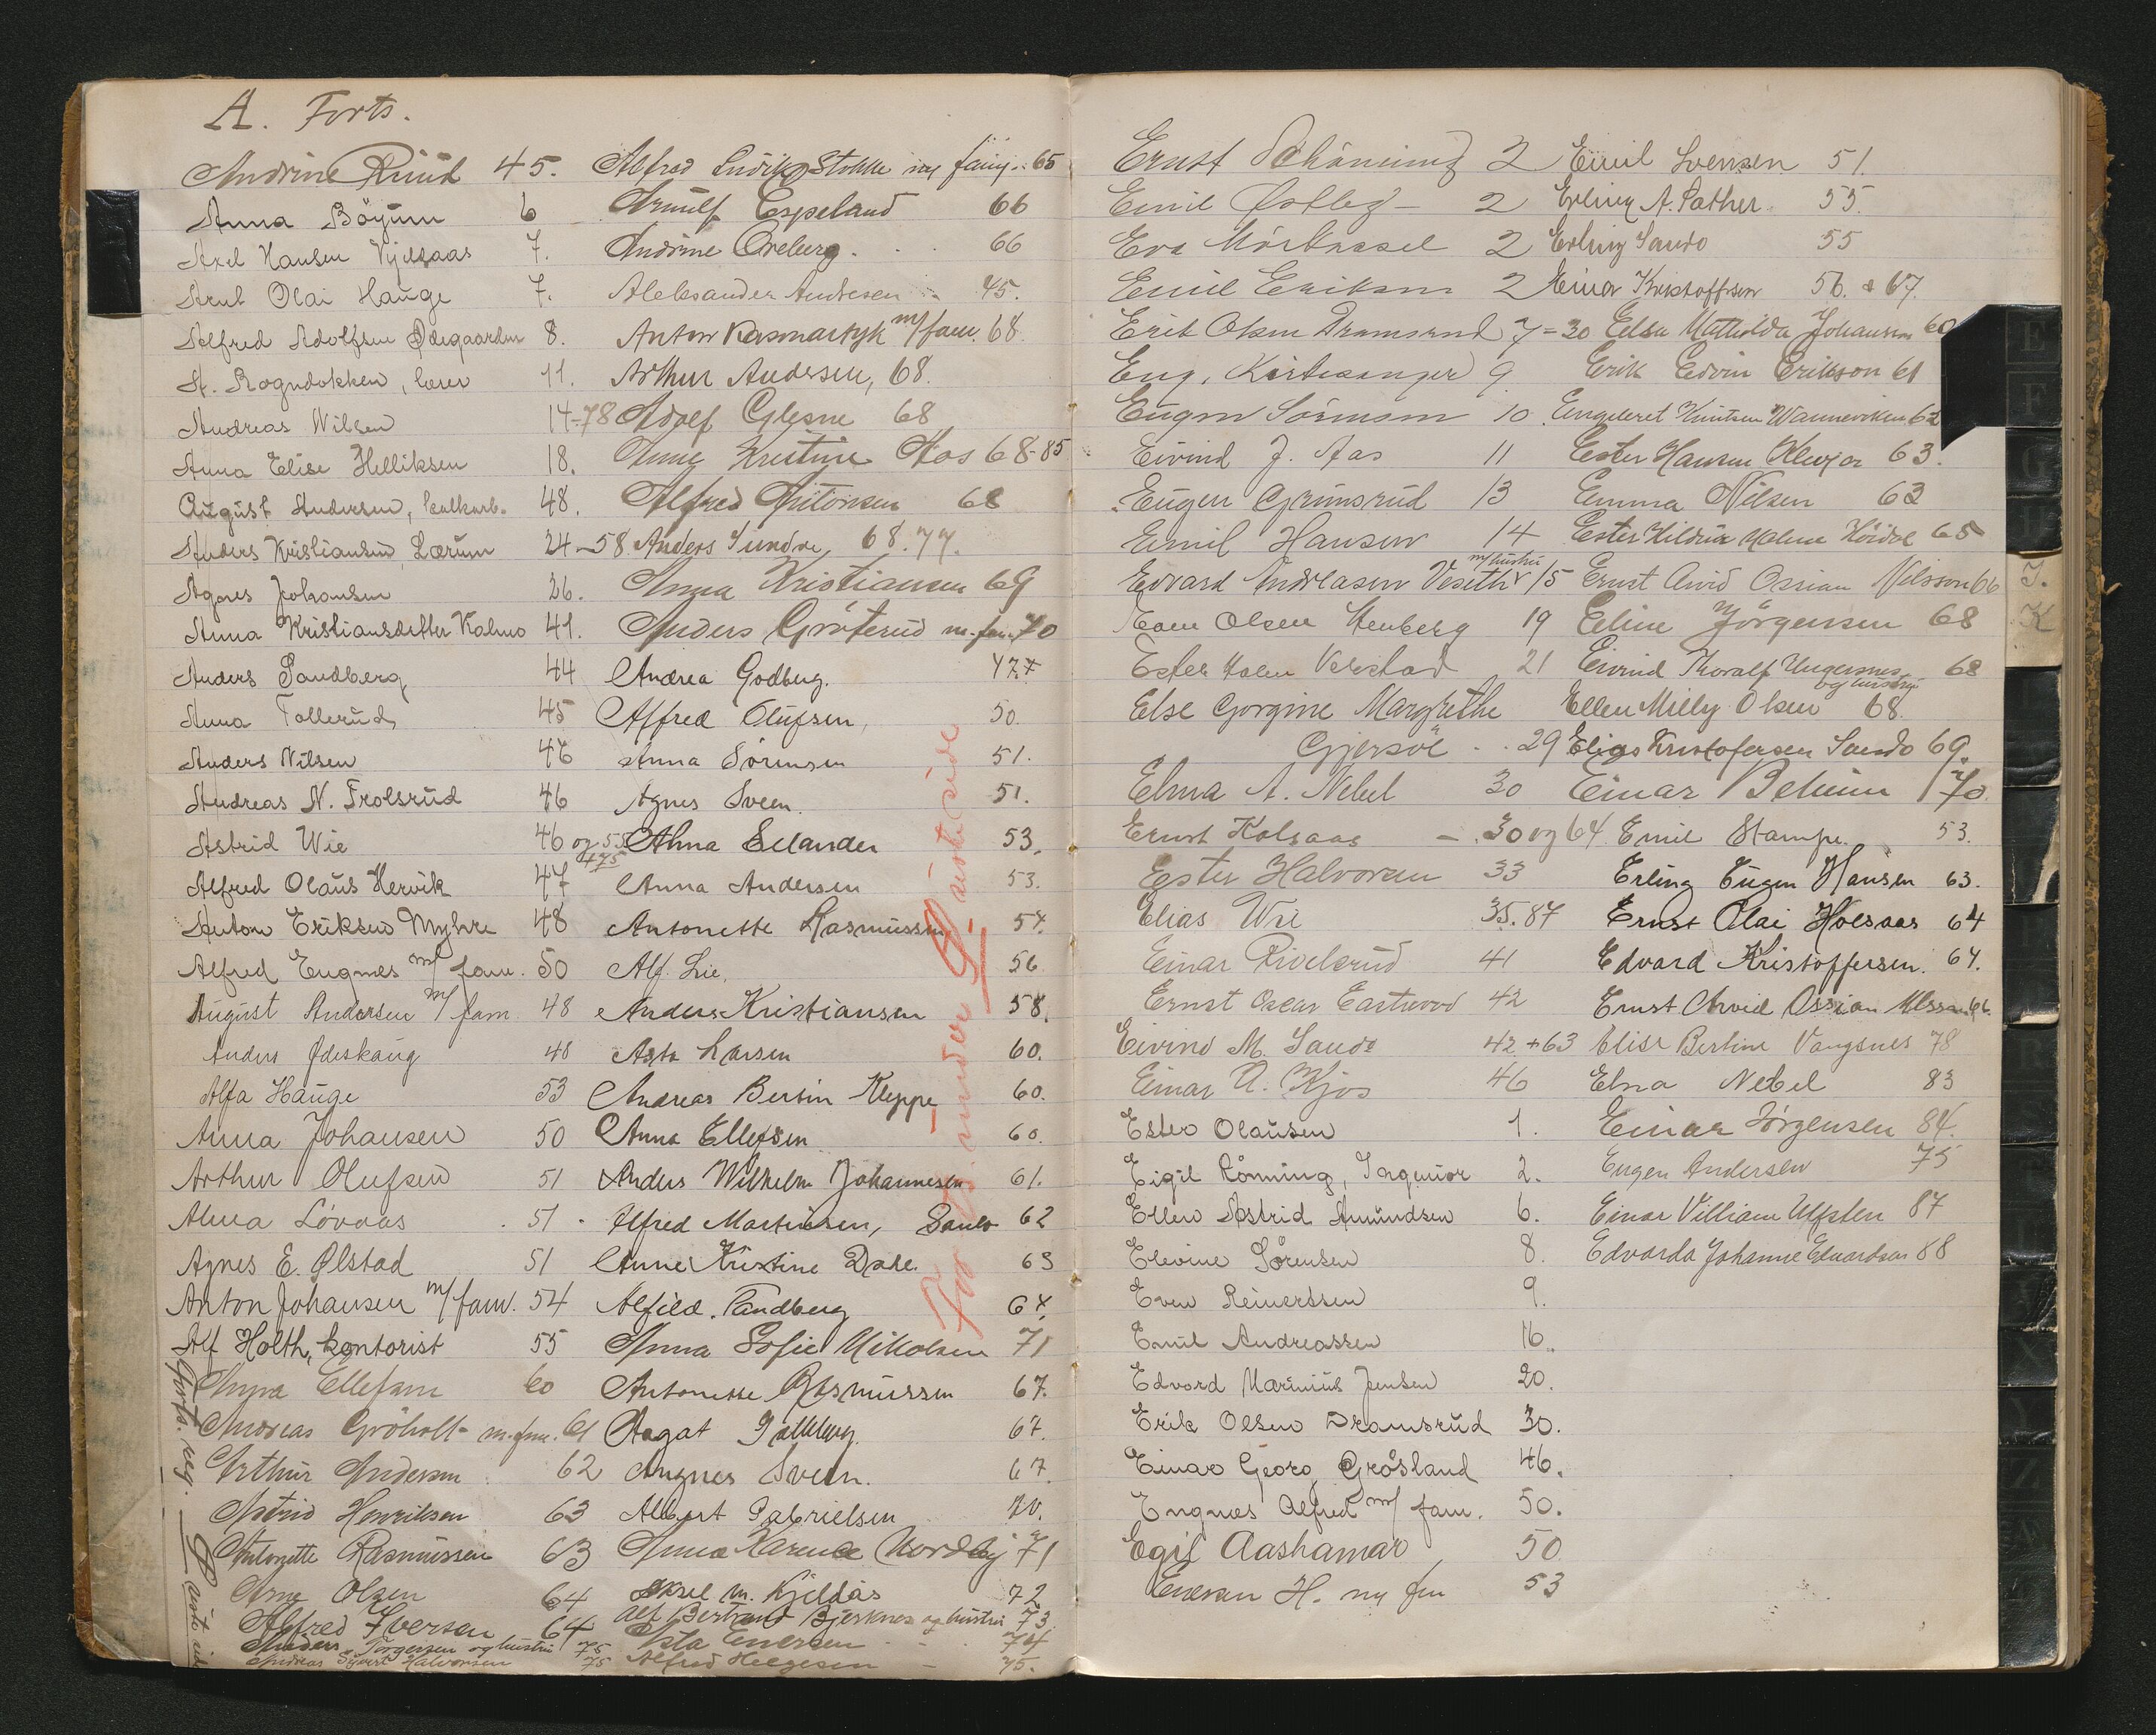 A. Forts.
Andrine Ruud 45.
Anna Böyum 6
Axel Hansen 7.
Arnt Olai Hauge 7.
Alfred Adolfsen Ødegaarden 8.
A. Rogndokken, lærer 11.
Andreas Wilsen 14-78
Anna Elise Helliksen 18.
August Andersen, 48.
Anders Kristiansen, Lærum 24-58
Agnes Johansen 26.
Anna Kristiansdatter Kalmo 41.
Anders Sandberg 44
Anna Tollerud 45
Anders Nilsen 46
Andreas N. Frolsrud 46
Astrid Wie 46 og 55
+75
Alfred Olaus Hervik 47
Anton Eriksen Myhre 48
Alfred Engnes m/ fam. 50
August Andersen m/ fam 48
Anders 48
Alfa Hauge 53
Anna Johansen 50
Arthur Olufsen 51
Alma Lövaas 51
Agnes E. Ølstad 51
Anton Johansen m/ fam. 54
Alf Holth, kontorist 55
Anna Ellefsen 60
Andreas Gröholt m. fam. 61
Arthur Andersen 62
Astrid Henriksen 63
Antonette Rasmussen 63
Arne Olsen 64
Alfred Iversen 64
Anders Torgersen og hustru 75
Andreas Sivert Halvorsen 75
Alfred Ludvig Stokke 65
Arnulf Espeland 66
Andrine Oreberg. 66
Aleksander Andresen 45.
Anton Kasmartyk m/ fam. 68.
Arthur Andersen, 68.
Adolf Glesne 68
Anne Kristine Aas 68-85
Alfred Antonsen 68
Anders Sundre, 68. 77.
Anna Kristiansen 69
Anders Gröterud m. fam. 70
Andrea Godberg.
Alfred Olufsen, 50.
Anna Sörensen 51.
Agnes Sveen. 51.
Alma Selander 53.
Anna Andersen 53.
Antonette Rasmussen 57.
Alf. Lie. 56
Anders Kristiansen 58.
Asta Larsen 60.
Andreas Bertin Kleppe 60.
Anna Ellefsen 60.
Anders Wilhelm Johannesen 61.
Alfred Martinsen, Sando 62
Anne Kristine Dahl. 63
Alfild. Sandberg 64.
Anna Sofie Nikolsen 71
Antonette Rasmussen 67.
Aagot 67.
Angnes Sveen. 67.
Albert Gabrielsen 70.
Anna Karence Nordby 71
Aksel M. Kjeldås 72
Alf Bertrand Bjerknes og hustru 73
Asta Enersen 74
Alfred Helgesen 75.
Forts. under P siste side
Forts. reg. P siste side
Ernst Schöning 2
Emil Østby 2
Eva Mörk 2
Emil Eriksen 2
Erik Olsen Dramsrud 7=30
Eug. Kirkesanger 9
Eugen Sörensen 10.
Eivind J. Aas 11
Eugen Grimsrud 13
Emil Hansen 14
Edvard Andreasen Veseth m/hustru 15
Even Olsen Stenberg 19
Ester Halen Verstad 21
Else Gorgine Margrethe
Gjersöe 29
Elma A. Nebel 30
Ernst Kolsaas 30 og 64
Ester Halvorsen 33
Elias Wie 35.87
Einar Rivelsrud 41
Ernst Oscar Eastwood 42
Eivind M. Sando 42+63
Einar A. Kjos 46
Ester Olausen 1.
Eigil Rönning, Ingeniör 2.
Ellen Astrid Amundsen 6.
Elevine Sörensen 8.
Even Reinertsen 9.
Emil Andreassen 16.
Edvard Marinius Jensen 20.
Erik Olsen Dramsrud 30.
Einar Georg Grösland 46.
Engnes Alfred m/ fam. 50.
Egil Aashamar, 50
Enersen H. 53
Emil Svensen 51.
Erling A. Sather. 55.
Erling Sando 55
Einar Kristoffersen 56. & 67.
Elsa Mathilda Johansen 60
Erik Edvin Erikson 61
Engebret Knutsen Wanneviken 62
Ester Hansen 63.
Emma Nilsen 63
Ester Hildur Malene 65
Ernst Arvid Ossian Nilsson 66
Eline Jörgensen 68
Eivind Thoralf Ungersnes og hustru 68
Ellen Milly Olsen 68.
Elias Kristofersen Sando 69.
Einar Behum 70.
Emil Stampe. 53.
Erling Eugen Hansen 63.
Ernst Olai Holsaas 64
Edvard Kristoffersen. 67.
Ernst Arvid Ossian Nilsson 66.
Elise Bertine Vangsnes 78
Elna Nebel 83
Einar Jörgensen 84.
Eugen Andersen 75
Einar Villiam Ulfsten 87
Edvarda Johanne Edvardsen 88
E
F
G
H
J.
K
X
Y
Z